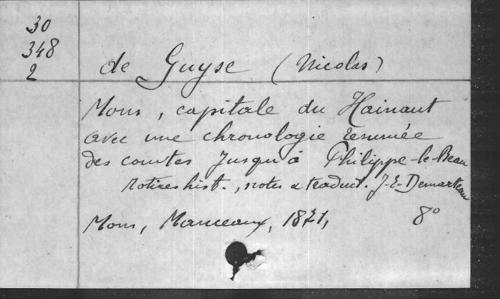 30
348
2
de Guyse (Nicolas)
Mons, capitale du Hainaut
avec une chronologie resumée
des comtes jusqu'à Philippe-le-Beau
notices hist., notes & traduct. J-E-Demarteau
Mons, Manceaux, 1871, 8°